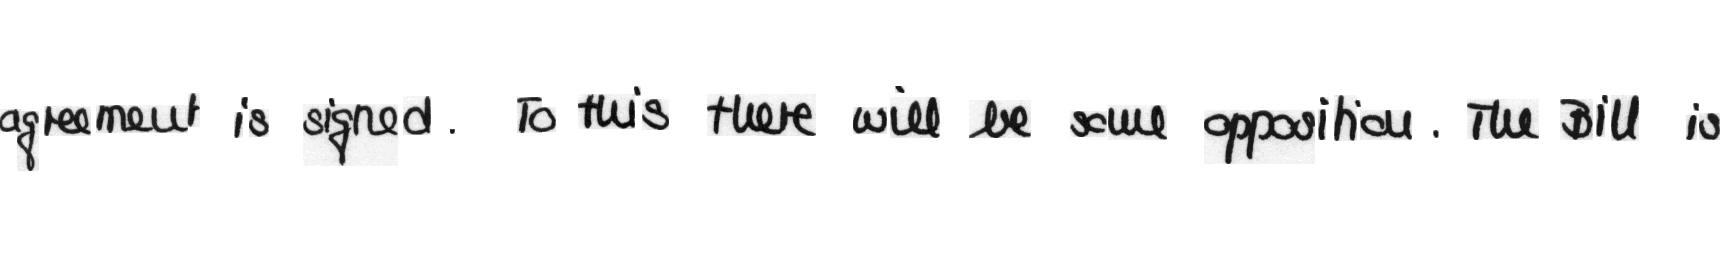 agreement is signed. To this there will be some opposition. The Bill is